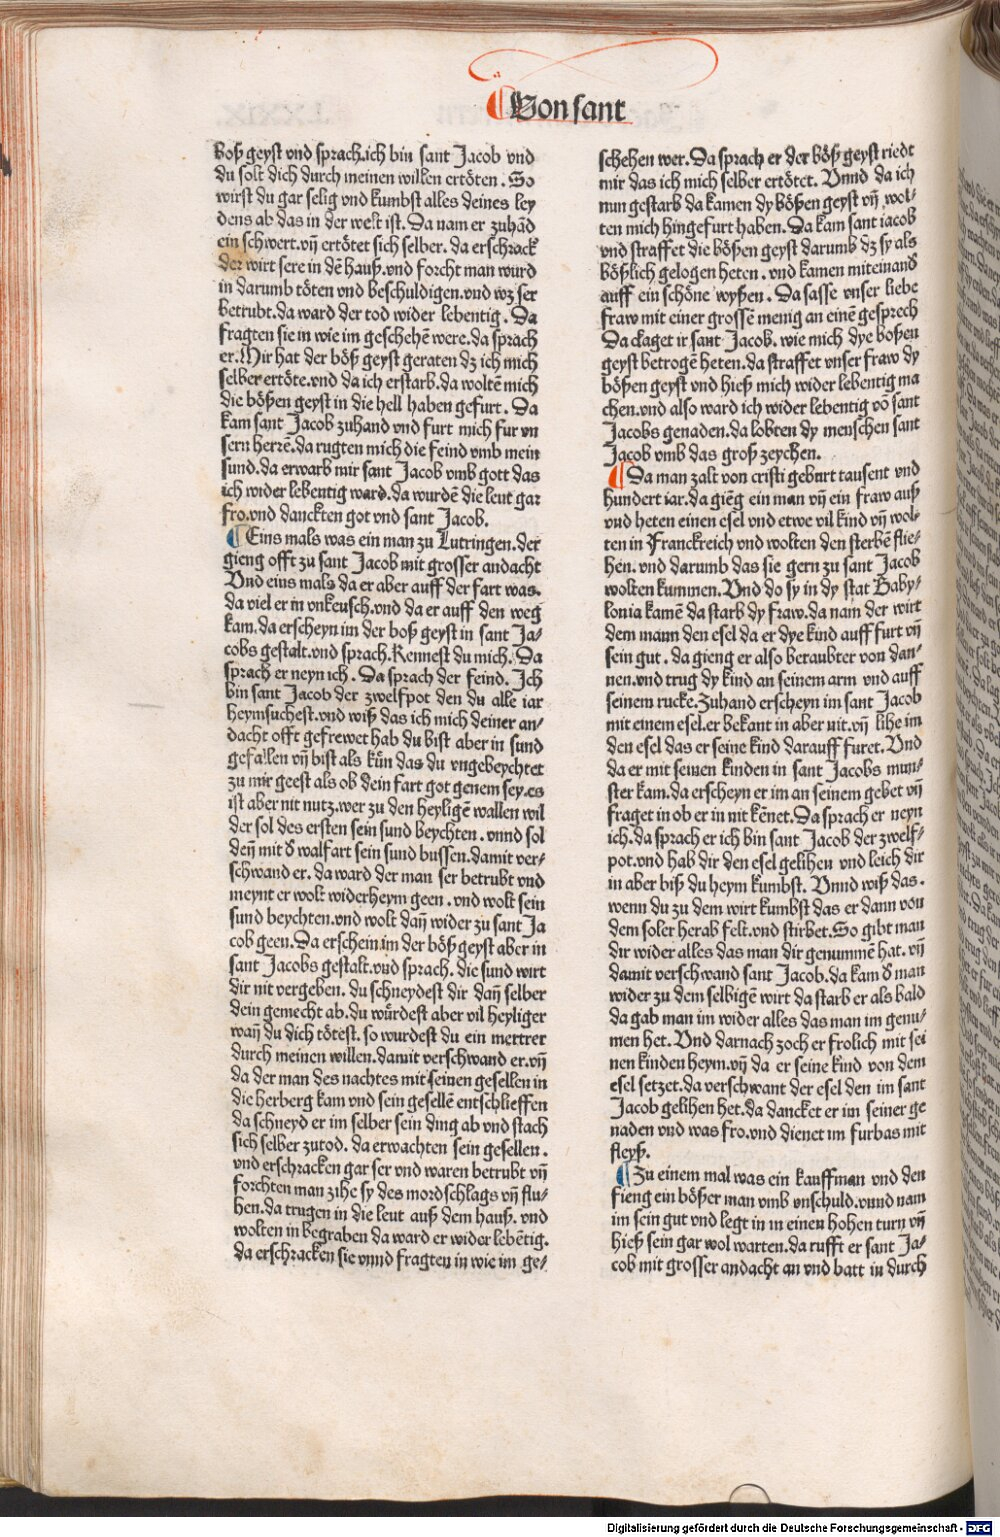 Von sant
boß geyst vnd sprach.ich bin sant Jacob vnd
du solt dich durch meinen willen ertöten. So
wirst du gar selig vnd kumbst alles deines ley
dens ab das in der welt ist. Da nam er zuhād
ein schwert.vn̄ ertötet sich selber. da erschrack
der wirt sere in dē hauß.vnd forcht man wurd
in darumb töten vnd beschuldigen.vnd wz ser
betrubt.da ward der tod wider lebentig. Da
fragten sie in wie im geschehē were.da sprach
er.Mir hat der böß geyst geraten dz ich mich
selber ertöte.vnd da ich erstarb.da woltē mich
die bößen geyst in die hell haben gefurt. Da
kam sant Jacob zuhand vnd furt mich fur vn
sern herzē.da rugten mich die feind vmb mein
sund.da erwarb mir sant Jacob vmb gott das
ich wider lebentig ward.da wurdē die leut gar
fro.vnd danckten got vnd sant Jacob.
Eins mals was ein man zu Lutringen.der
gieng offt zu sant Jacob mit grosser andacht
Vnd eins mals da er aber auff der fart was.
da viel er in vnkeusch.vnd da er auff den weg
kam.da erscheyn im der boß geyst in sant Ja⸗
cobs gestalt.vnd sprach.Kennest du mich. Da
sprach er neyn ich. Da sprach der feind. Ich
bin sant Jacob der zwelfpot den du alle iar
heymsuchest.vnd wiß das ich mich deiner an⸗
dacht offt gefrewet hab du bist aber in sund
gefallen vn̄ bist als kün das du vngebeychtet
zu mir geest als ob dein fart got genem sey.es
ist aber nit nutz.wer zu den heyligē wallen wil
der sol des ersten sein sund beychten. vnnd sol
den̄ mit d walfart sein sund bussen.damit ver⸗
schwand er. da ward der man ser betrubt vnd
meynt er wolt widerheym geen. vnd wolt sein
sund beychten.vnd wolt dan̄ wider zu sant Ja
cob geen.Da erschein im der böß geyst aber in
sant Jacobs gestalt.vnd sprach. die sund wirt
dir nit vergeben. du schneydest dir dan̄ selber
dein gemecht ab.du würdest aber vil heyliger
wan̄ du dich tötest. so wurdest du ein mertrer
durch meinen willen.damit verschwand er.vn̄
da der man des nachtes mit seinen gesellen in
die herberg kam vnd sein gesellē entschlieffen
da schneyd er im selber sein ding ab vnd stach
sich selber zutod. da erwachten sein gesellen.
vnd erschracken gar ser vnd waren betrubt vn̄
forchten man zihe sy des mordschlags vn̄ flu⸗
hen.da trugen in die leut auß dem hauß. vnd
wolten in begraben da ward er wider lebētig.
da erschracken sie vnnd fragten in wie im ge⸗
schehen wer. Da sprach er der böß geyst riedt
mir das ich mich selber ertötet. Vnnd da ich
nun gestarb da kamen dy bößen geyst vn̄ wol⸗
ten mich hingefurt haben. Da kam sant iacob
vnd straffet die bößen geyst darumb dz sy als
bößlich gelogen heten. vnd kamen miteinand
auff ein schöne wyßen. Da sasse vnser liebe
fraw mit einer grossē menig an einē gesprech
Da claget ir sant Jacob. wie mich dye boßen
geyst betrogē heten.da straffet vnser fraw dy
bößen geyst vnd hieß mich wider lebentig ma
chen.vnd also ward ich wider lebentig vō sant
Jacobs genaden.da lobten dy menschen sant
Jacob vmb das groß zeychen.
Da man zalt von cristi geburt tausent vnd
hundert iar.da giēg ein man vn̄ ein fraw auß
vnd heten einen esel vnd etwe vil kind vn̄ wol⸗
ten in Franckreich vnd wolten den sterbē flie⸗
hen. vnd darumb das sie gern zu sant Jacob
wolten kummen. Vnd do sy in dy stat Baby⸗
lonia kamē da starb dy fraw.da nam der wirt
dem mann den esel da er dye kind auff furt vn̄
sein gut. da gieng er also beraubter von dan⸗
nen.vnd trug dy kind an seinem arm vnd auff
seinem rucke.Zuhand erscheyn im sant Jacob
mit einem esel.er bekant in aber nit.vn̄ lihe im
den esel das er seine kind darauff furet. Vnd
da er mit seinen kinden in sant Jacobs mun⸗
ster kam.da erscheyn er im an seinem gebet vn̄
fraget in ob er in nit kēnet.Da sprach er neyn
ich.da sprach er ich bin sant Jacob der zwelf⸗
pot.vnd hab dir den esel gelihen vnd leich dir
in aber biß du heym kumbst. Vnnd wiß das.
wenn du zu dem wirt kumbst das er dann von
dem soler herab felt.vnd stirbet.So gibt man
dir wider alles das man dir genummē hat. vn̄
damit verschwand sant Jacob.da kam d man
wider zu dem selbigē wirt da starb er als bald
da gab man im wider alles das man im genu⸗
men het. Vnd darnach zoch er frolich mit sei
nen kinden heym.vn̄ da er seine kind von dem
esel setzet.da verschwant der esel den im sant
Jacob gelihen het.da dancket er im seiner ge
naden vnd was fro.vnd dienet im furbas mit
fleyß.
Zu einem mal was ein kauffman vnd den
fieng ein bößer man vmb vnschuld.vnnd nam
im sein gut vnd legt in in einen hohen turn vn̄
hieß sein gar wol warten.da rufft er sant Ja⸗
cob mit grosser andacht an vnd batt in durch
Digitalisierung gefördert durch die Deutsche Forschungsgemeinschaft - DFG